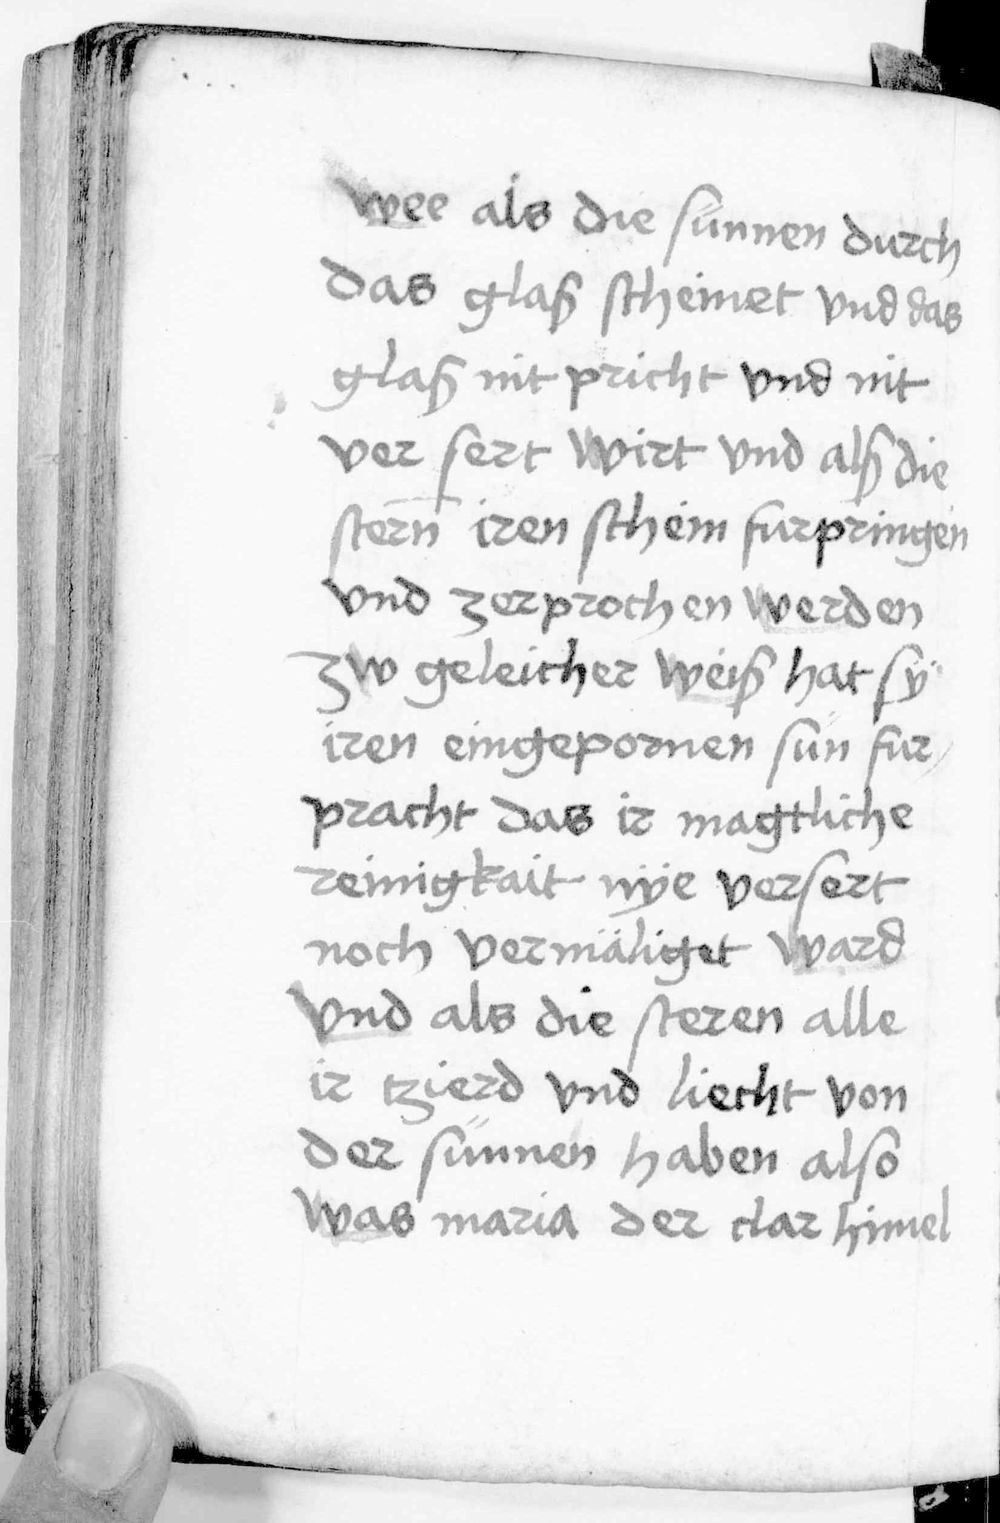 wee als die sünnen durch
das glaß scheinet vnd das
glaß nit pricht vnd nit
ver sert wirt vnd alß die
stern̄ iren schein furpringen
vnd zerprochen werden
zw geleicher weiß hat sÿ
iren eingepornen sün fur
pracht das ir magtliche
reinigkait nÿe versert
noch vermäliget ward
vnd als die steren alle
ir tzierd vnd liecht von
der sünnen haben also
was maria der clar himel